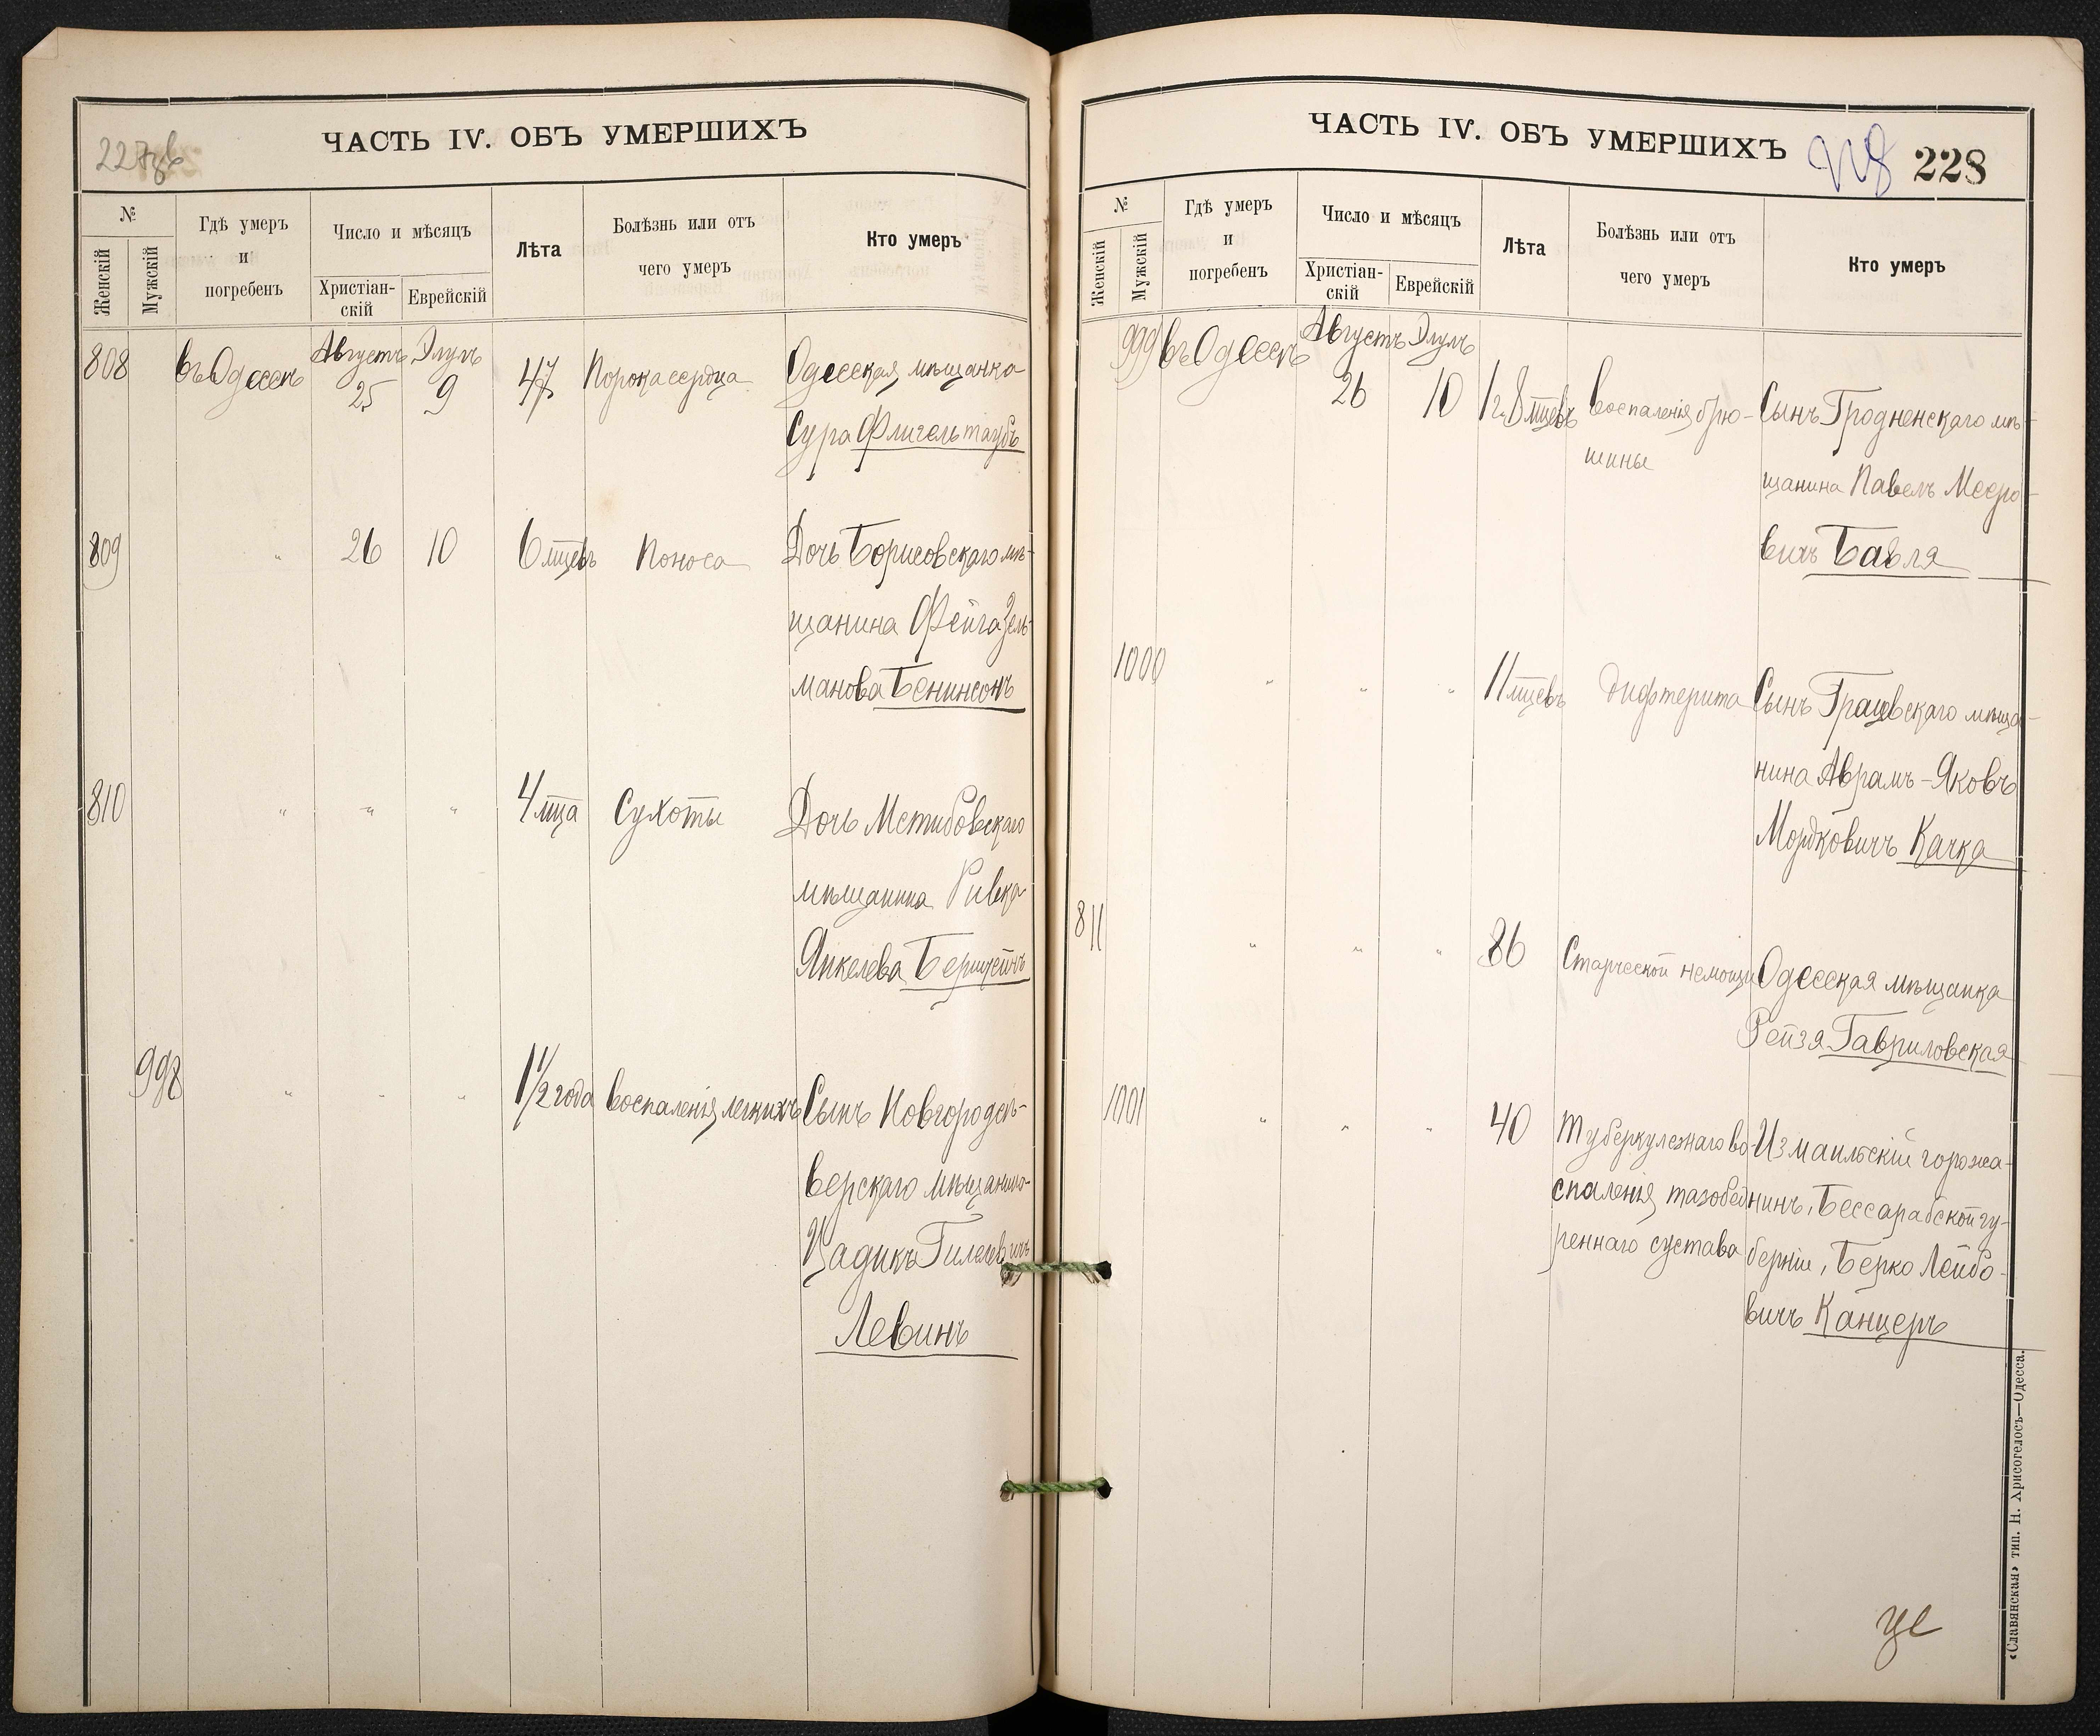 ЧАСТЬ IV. ОБЪ УМЕРШИХЪ
№
Женскій
Мужскій
Гдѣ умеръ
и
погребенъ
Число и мѣсяцъ
Христіан-
скій
Еврейскій
Лѣта
Болѣзнь или отъ
чего умеръ
Кто умеръ
808 въ Одессѣ Августъ 25 Элулъ 9 47 Порока сердца Одесская мѣщанка
Сура Флигельтаубъ
809 " 26 10 6 мцевъ Поноса Дочь Борисовскаго мѣ-
щанина Фейга Зель-
манова Бенинсонъ
810 " " " 4 мца Сухоты Дочь Мстибовскаго
мѣщанина Ривка
Янкелева Берштейнъ
998 " " " 1 1/2 года воспаленія легкихъ Сынъ Новгородсѣ-
верскаго мѣщанина
Цадикъ Гилелевичъ
Левинъ
ЧАСТЬ IV. ОБЪ УМЕРШИХЪ
228 228
№
Женскій
Мужскій
Гдѣ умеръ
и
погребенъ
Число и мѣсяцъ
Христіан-
скій
Еврейскій
Лѣта
Болѣзнь или отъ
чего умеръ
Кто умеръ
999 въ Одессѣ Августъ 26 Элулъ 10 1 г. 8 мцевъ воспаленія брю- Сынъ Гродненскаго мѣ-
шины щанина Павелъ Мееро-
вичъ Бавля
1000 " " " 11 мцевъ Дифтерита Сынъ мѣща-
нина Аврамъ-Яковъ
Мордковичъ Качка
811 " " " 86 Старческой немощи Одесская мѣщанка
Рейзя Гавриловская
1001 " " " 40 Туберкулезнаго во- Измаильскій горожа-
спаленія тазобед- нинъ, Бессарабской гу-
реннаго сустава берніи, Берко Лейбо-
вичъ Канцеръ
«Славянская» тип. Н. Хрисогелосъ—Одесса.